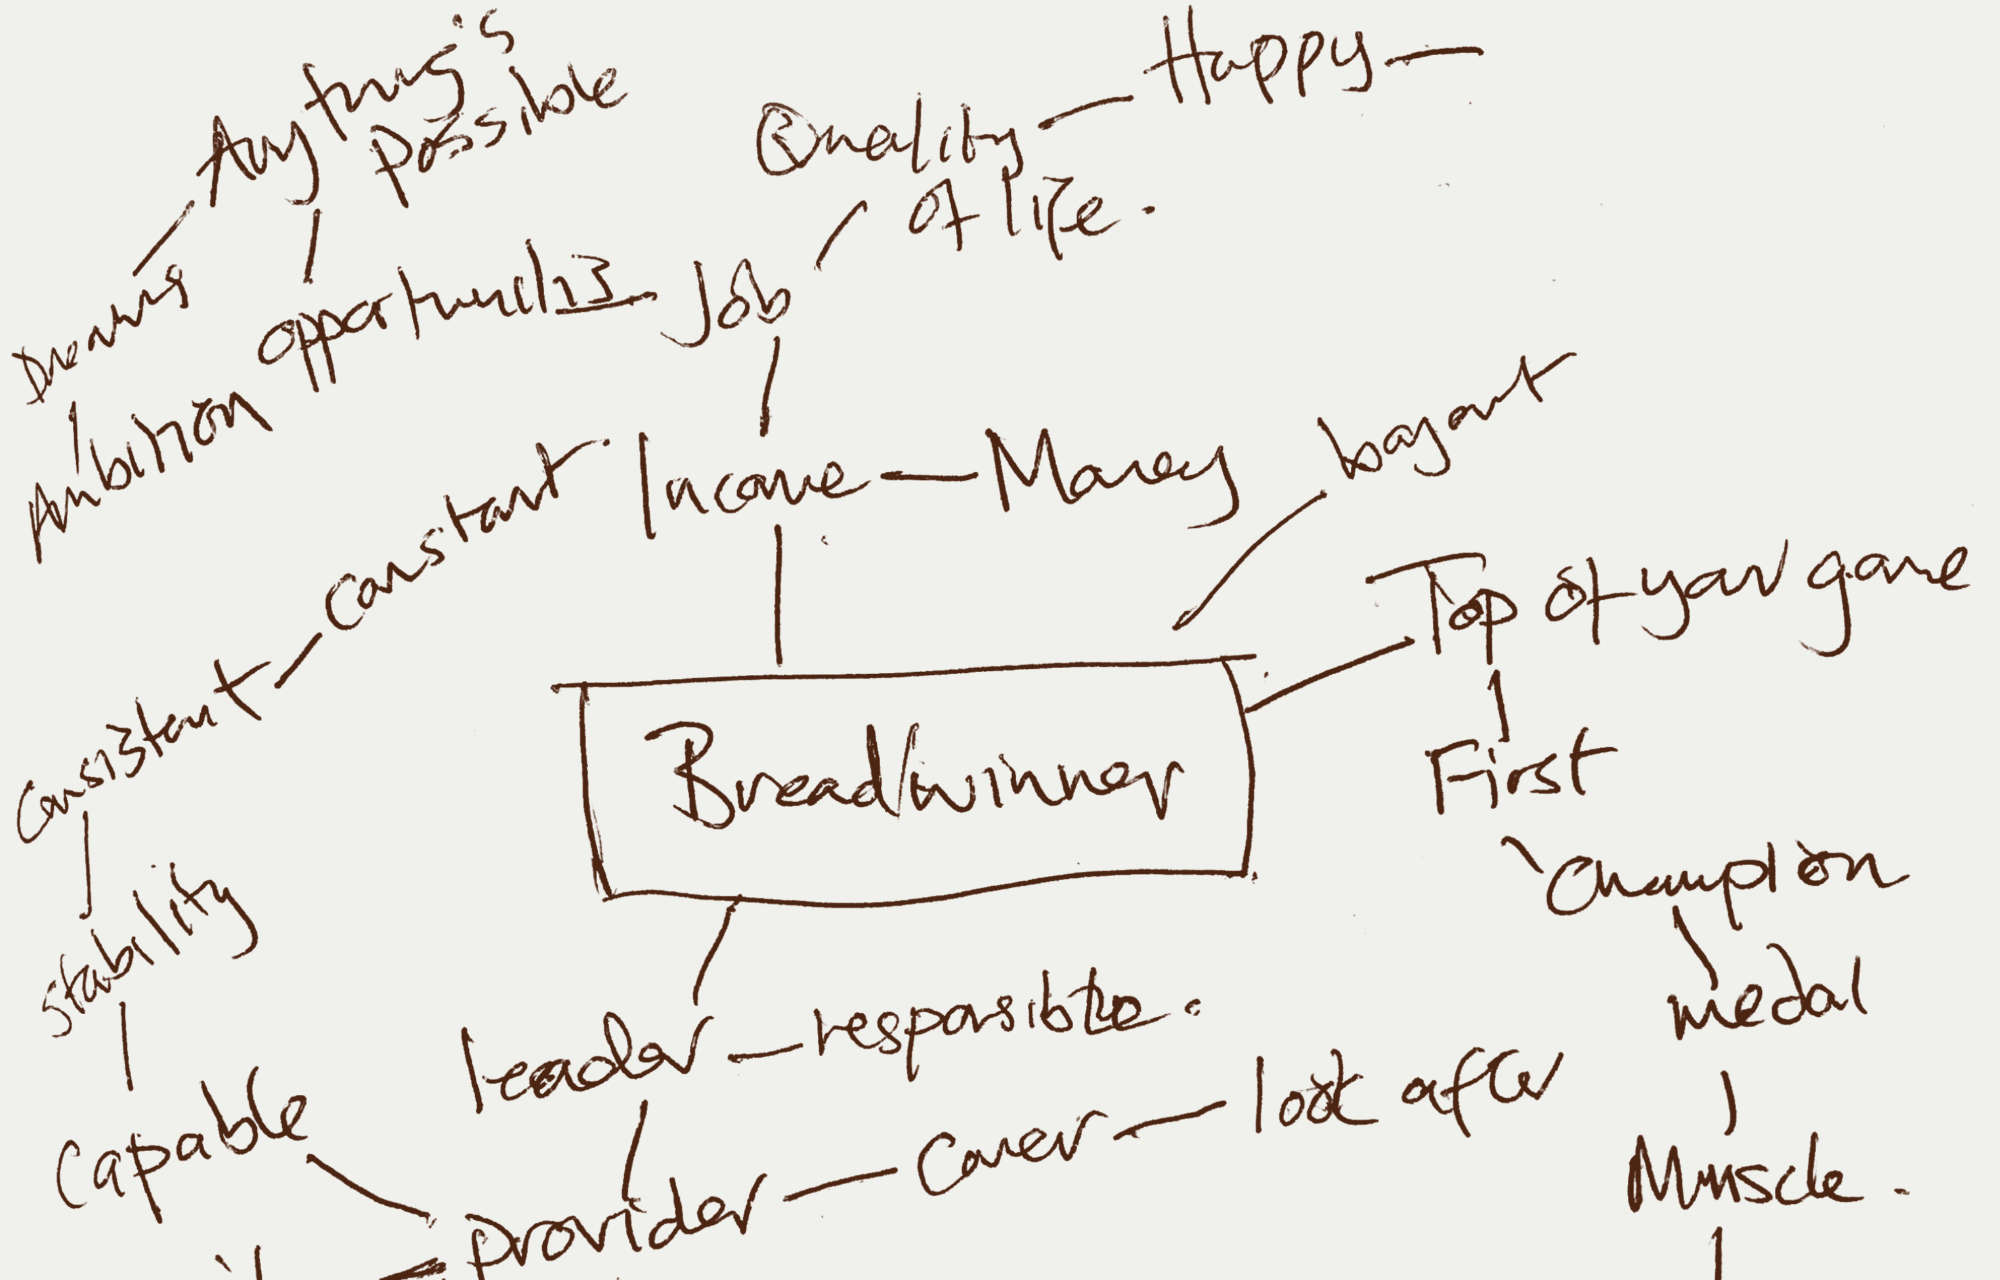 Anything's
possible
Happy
Quality
of life.
Dreams
opportunities
Job
Ambition
constant
Income
Money
Top of your game
Consistant
Bread/winner
First
Champion
Stability
medal
leader
responsible.
look after
Capable
Carer
Muscle.
provider